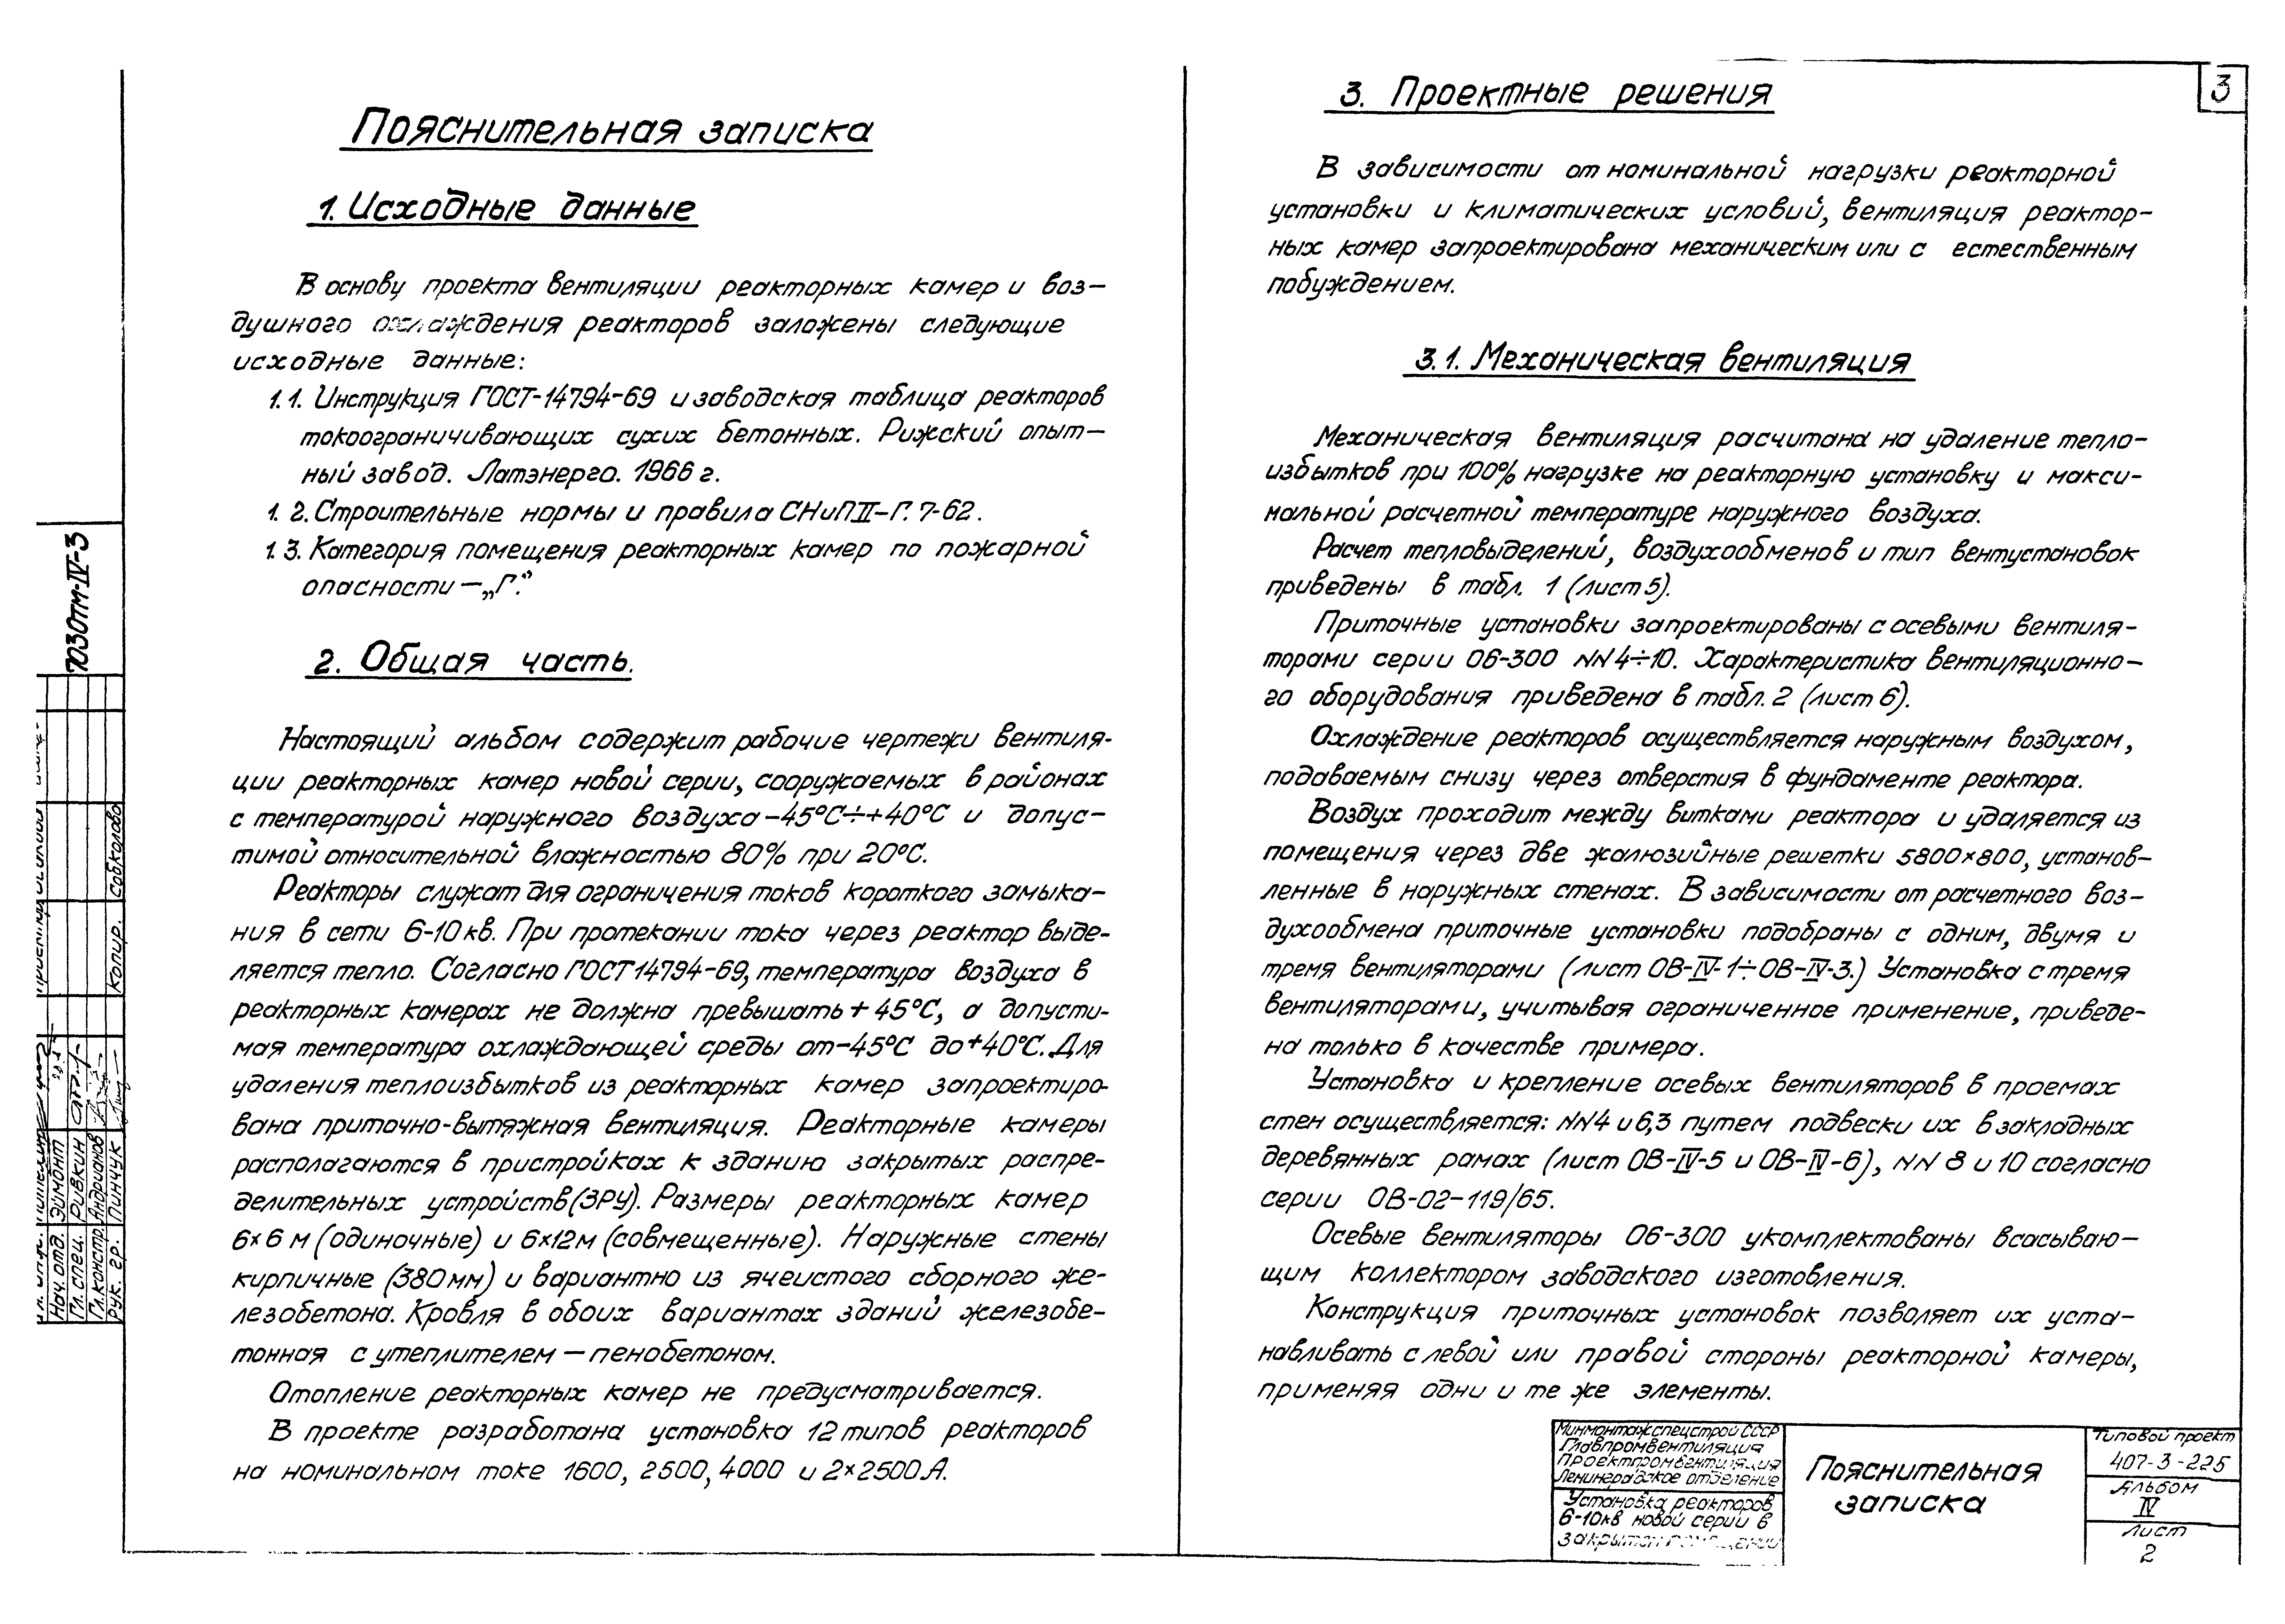 Пояснительная записка
1. Исходные данные
В основу проекта вентиляции реакторных камер и воз-
душного охлаждения реакторов заложены следующие
исходные данные:
1.1. Инструкция ГОСТ-14794-69 и заводская таблица реакторов
токоограничивающих сухих бетонных. Рижский опыт-
ный завод. Латэнерго. 1966 г.
1.2. Строительные нормы и правила СНиП II-Г. 7-62.
1.3. Категория помещения реакторных камер по пожарной
опасности — „Г."
2. Общая часть.
Настоящий альбом содержит рабочие чертежи вентиля-
ции реакторных камер новой серии, сооружаемых в районах
с температурой наружного воздуха -45°С÷+40°С и допус-
тимой относительной влажностью 80% при 20°С.
Реакторы служат для ограничения токов короткого замыка-
ния в сети 6-10 кв. При протекании тока через реактор выде-
ляется тепло. Согласно ГОСТ 14794-69, температура воздуха в
реакторных камерах не должна превышать + 45°С, а допусти-
мая температура охлаждающей среды от -45°С до +40°С. Для
удаления теплоизбытков из реакторных камер запроектиро-
вана приточно-вытяжная вентиляция. Реакторные камеры
располагаются в пристройках к зданию закрытых распре-
делительных устройств (ЗРУ). Размеры реакторных камер
6×6 м (одиночные) и 6×12м (совмещенные). Наружные стены
кирпичные (380 мм) и вариантно из ячеистого сборного же-
лезобетона. Кровля в обоих вариантах зданий железобе-
тонная с утеплителем — пенобетоном.
Отопление реакторных камер не предусматривается.
В проекте разработана установка 12 типов реакторов
на номинальном токе 1600, 2500, 4000 и 2×2500А.
3
3. Проектные решения
В зависимости от номинальной нагрузки реакторной
установки и климатических условий, вентиляция реактор-
ных камер запроектирована механическим или с естественным
побуждением.
3.1. Механическая вентиляция
Механическая вентиляция расчитана на удаление тепло-
избытков при 100% нагрузке на реакторную установку и макси-
мальной расчетной температуре наружного воздуха.
Расчет тепловыделений, воздухообменов и тип вентустановок
приведены в табл. 1 (лист 5).
Приточные установки запроектированы с осевыми вентиля-
торами серии 06-300 NN 4÷10. Характеристика вентиляционно-
го оборудования приведена в табл. 2 (лист 6).
Охлаждение реакторов осуществляется наружным воздухом,
подаваемым снизу через отверстия в фундаменте реактора.
Воздух проходит между витками реактора и удаляется из
помещения через две жалюзийные решетки 5800×800, установ-
ленные в наружных стенах. В зависимости от расчетного воз-
духообмена приточные установки подобраны с одним, двумя и
тремя вентиляторами (лист ОВ-IV-1÷ОВ-IV-3.) Установка с тремя
вентиляторами, учитывая ограниченное применение, приведе-
на только в качестве примера.
Установка и крепление осевых вентиляторов в проемах
стен осуществляется: NN4 и 6,3 путем подвески их в закладных
деревянных рамах (лист ОВ-IV-5 и ОВ-IV-6), NN 8 и 10 согласно
серии ОВ-02-119/65.
Осевые вентиляторы 06-300 укомплектованы всасываю-
щим коллектором заводского изготовления.
Конструкция приточных установок позволяет их уста-
навливать с левой или правой стороны реакторной камеры,
применяя одни и те же элементы.
Минмонтажспецстрой СССР
Главпромвентиляция
Проектпромвентиляция
Ленинградское отделение
Установка реакторов
6-10кв новой серии в
закрытом помещении
Пояснительная
записка
Типовой проект
407-3-225
Альбом
IV
Лист
2
7030тм-IV-3
Копир. Собколова
Нач. отд. Эймонт
Гл. спец. Ривкин
Гл. констр. Андрианов
Рук. гр. Пинчук